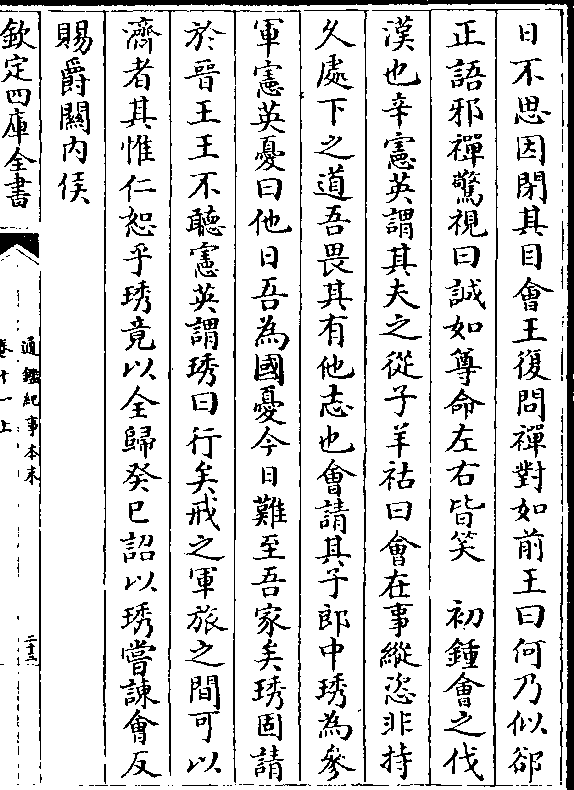 日不思因閉其目會王復問禪對如前王曰何乃似郤
正語邪禪驚視曰誠如尊命左右皆笑　初鍾會之伐
漢也辛憲英謂其夫之從子羊祜曰會在事縱恣非持
久處下之道吾畏其有他志也會請其子郎中琇為參
軍憲英憂曰他日吾為國憂今日難至吾家矣琇固請
於晉王王不聽憲英謂琇曰行矣戒之軍旅之間可以
濟者其惟仁恕乎琇竟以全歸癸巳詔以琇嘗諫會反
賜爵關内侯
欽定四庫全書
通鑑紀事本末
卷十一上
二十三